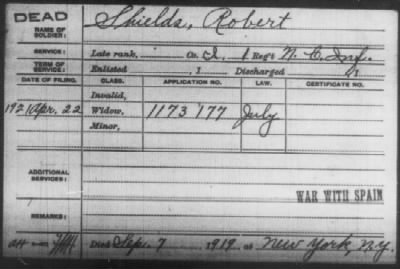 DEAD
NAME OF SOLDIER: Shields, Robert
SERVICE: Late rank, Co. I, 1 Reg't N. C. Inf.
TERM OF SERVICE: Enlisted , 1 Discharged , 1
DATE OF FILING. CLASS. APPLICATION NO. LAW. CERTIFICATE NO.
Invalid,
1921 Apr. 22 Widow, 1173 177 July
Minor,
ADDITIONAL SERVICES:
WAR WITH SPAIN
REMARKS:
Died Sep. 7 1919 at New York, N.Y.